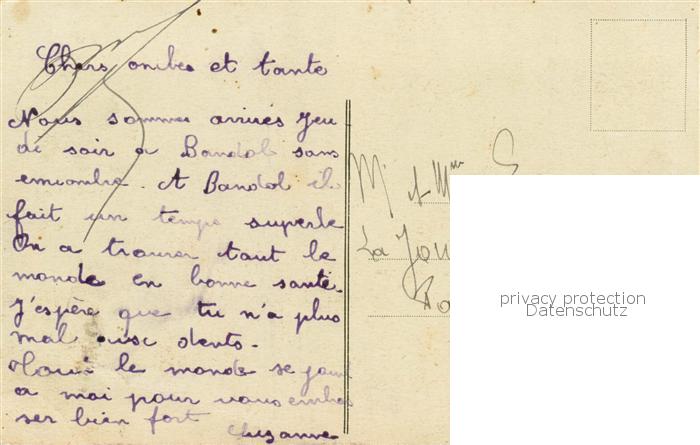 Chers oncles et tante
Nous sommes arrivés jeu
di soir a Bandol sans
encombre. A Bandol il
fait un temps superbe
On a trouver tout le
monde en bonne santé.
J'espère que tu n'a plus
mal aux dents.
Tout le monde se joint
a moi pour vous embras
ser bien fort
Suzanne
Mr et Mme
La
privacy protection
Datenschutz